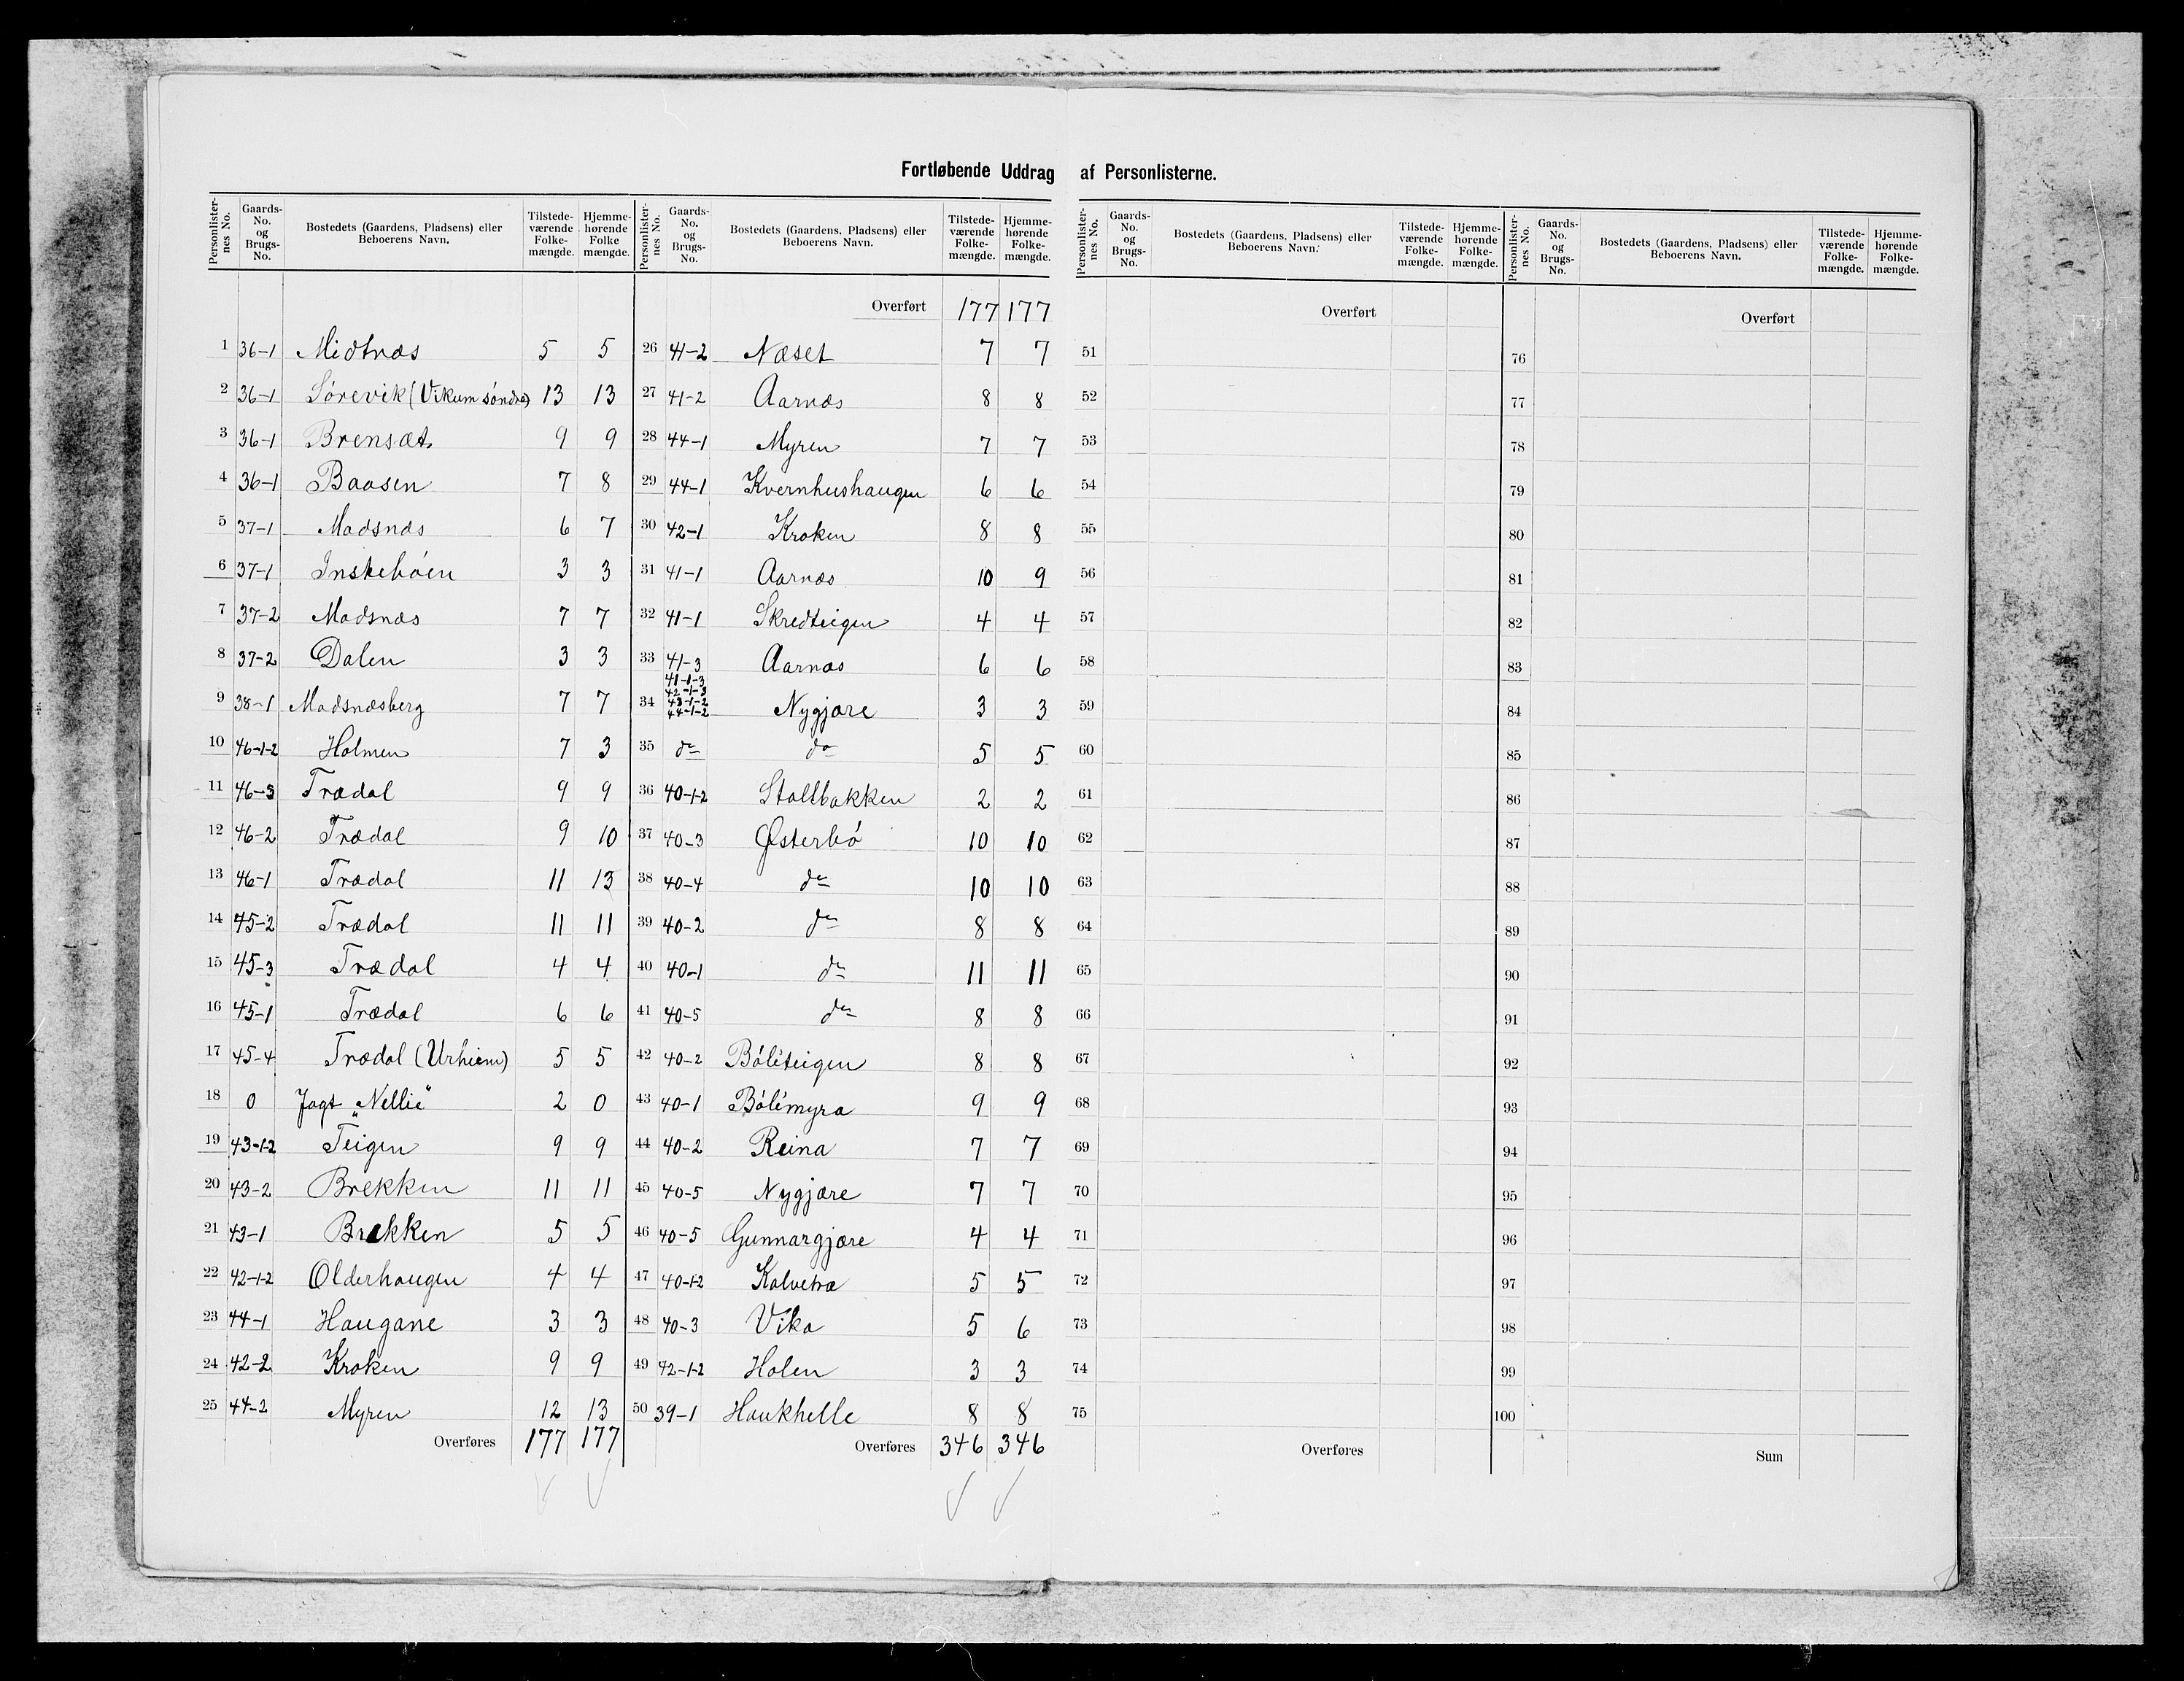 Fortløbende Uddrag af Personlisterne.
Personlister-nes No. Gaards-No. og Brugs-No. Bostedets (Gaardens, Pladsens) eller Beboerens Navn. Tilstede-værende Folke-mængde. Hjemme-hørende Folke mængde.
1 36-1 Midtnæs 5 5
2 36-1 Sørevik (Vikum søndre) 13 13
3 36-1 Brensæt 9 9
4 36-1 Baasen 7 8
5 37-1 Madsnæs 6 7
6 37-1 Instebøen 3 3
7 37-2 Madsnæs 7 7
8 37-2 Dalen 3 3
9 38-1 Madsnæsberg 7 7
10 46-1-2 Holmen 7 3
11 46-3 Trædal 9 9
12 46-2 Trædal 9 10
13 46-1 Trædal 11 13
14 45-2 Trædal 11 11
15 45-3 Trædal 4 4
16 45-1 Trædal 6 6
17 45-4 Trædal (Urhiem) 5 5
18 0 Jagt „Nellie" 2 0
19 43-1-2 Teigen 9 9
20 43-2 Brekken 11 11
21 43-1 Brekken 5 5
22 42-1-2 Olderhaugen 4 4
23 44-1 Haugane 3 3
24 42-2 Kroken 9 9
25 44-2 Myren 12 13
Overføres 177 177
Personlister-nes No. Gaards-No. og Brugs-No. Bostedets (Gaardens, Pladsens) eller Beboerens Navn. Tilstede-værende Folke-mængde. Hjemme-hørende Folke-mængde.
Overført 177 177
26 41-2 Næset 7 7
27 41-2 Aarnæs 8 8
28 44-1 Myren 7 7
29 44-1 Kvernhushaugen 6 6
30 42-1 Kroken 8 8
31 41-1 Aarnæs 10 9
32 41-1 Skredteigen 4 4
33 41-3 Aarnæs 6 6
41-1-3
42-1-3
34 43-1-2 Nygjære 3 3
44-1-2
35 do do 5 5
36 40-1-2 Stallbakken 2 2
37 40-3 Østerbø 10 10
38 40-4 do 10 10
39 40-2 do 8 8
40 40-1 do 11 11
41 40-5 do 8 8
42 40-2 Bøliteigen 8 8
43 40-1 Bølimyra 9 9
44 40-2 Reina 7 7
45 40-5 Nygjære 7 7
46 40-5 Gunnargjære 4 4
47 40-1-2 Kalvetræ 5 5
48 40-3 Vika 5 6
49 42-1-2 Holen 3 3
50 39-1 Haukhelle 8 8
Overføres 346 346
Personlister-nes No. Gaards-No. og Brugs-No. Bostedets (Gaardens, Pladsens) eller Beboerens Navn. Tilstede-værende Folke-mængde. Hjemme-hørende Folke-mængde.
Overført
51
52
53
54
55
56
57
58
59
60
61
62
63
64
65
66
67
68
69
70
71
72
73
74
75
Overføres
Personlister-nes No. Gaards-No. og Brugs-No. Bostedets (Gaardens, Pladsens) eller Beboerens Navn. Tilstede-værende Folke-mængde. Hjemme-hørende Folke-mængde.
Overført
76
77
78
79
80
81
82
83
84
85
86
87
88
89
90
91
92
93
94
95
96
97
98
99
100
Sum